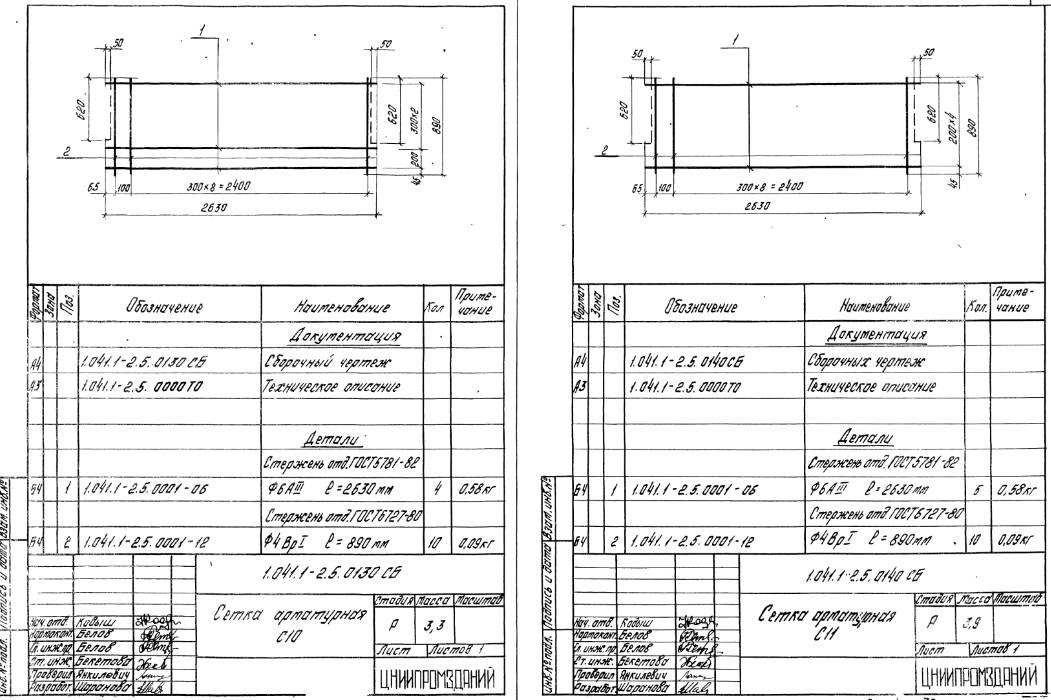 50
1
50
620
620
300×2
890
2
200
65
100
300×8=2400
45
2630
Формат
Зона
Поз.
Обозначение
Наименование
Кол
Приме-
чание
Документация
А4 1.041.1-2.5.0130 СБ Сборочный чертеж
А3 1.041.1-2.5.0000ТО Техническое описание
Детали
Стержень отд.ГОСТ5781-82
Б4 1 1.041.1-2.5.0001-06 Ф6АIII ℓ=2630мм 4 0,58кг
Стержень отд.ГОСТ6727-80
Б4 2 1.041.1-2.5.0001-12 Ф4ВрI ℓ=890мм 10 0,09кг
1.041.1-2.5.0130 СБ
Сетка арматурная
С10
Стадия Масса Масштаб
Р 3,3
Лист Листов 1
Нач. отд. Кодыш
Нормоконт. Белов
Гл. инж.пр. Белов
Ст. инж. Бекетова
Проверил Янкилевич
Разработ. Шаранова
ЦНИИПРОМЗДАНИЙ
Инв.№подл. Подпись и дата Взам.инв.№
50
1
50
620
620
200×4
890
2
65
100
300×8=2400
45
2630
Формат
Зона
Поз.
Обозначение
Наименование
Кол.
Приме-
чание
Документация
А4 1.041.1-2.5.0140СБ Сборочных чертеж
А3 1.041.1-2.5.0000ТО Техническое описание
Детали
Стержень отд.ГОСТ5781-82
Б4 1 1.041.1-2.5.0001-06 Ф6АIII ℓ=2630мм 5 0,58кг
Стержень отд.ГОСТ6727-80
Б4 2 1.041.1-2.5.0001-12 Ф4ВрI ℓ=890мм 10 0,09кг
1.041.1-2.5.0140 СБ
Сетка арматурная
С11
Стадия Масса Масштаб
Р 3,9
Лист Листов 1
Нач. отд. Кодыш
Нормоконт. Белов
Гл. инж.пр. Белов
Ст. инж. Бекетова
Проверил Янкилевич
Разработ. Шаранова
ЦНИИПРОМЗДАНИЙ
Инв.№подл. Подпись и дата Взам.инв.№